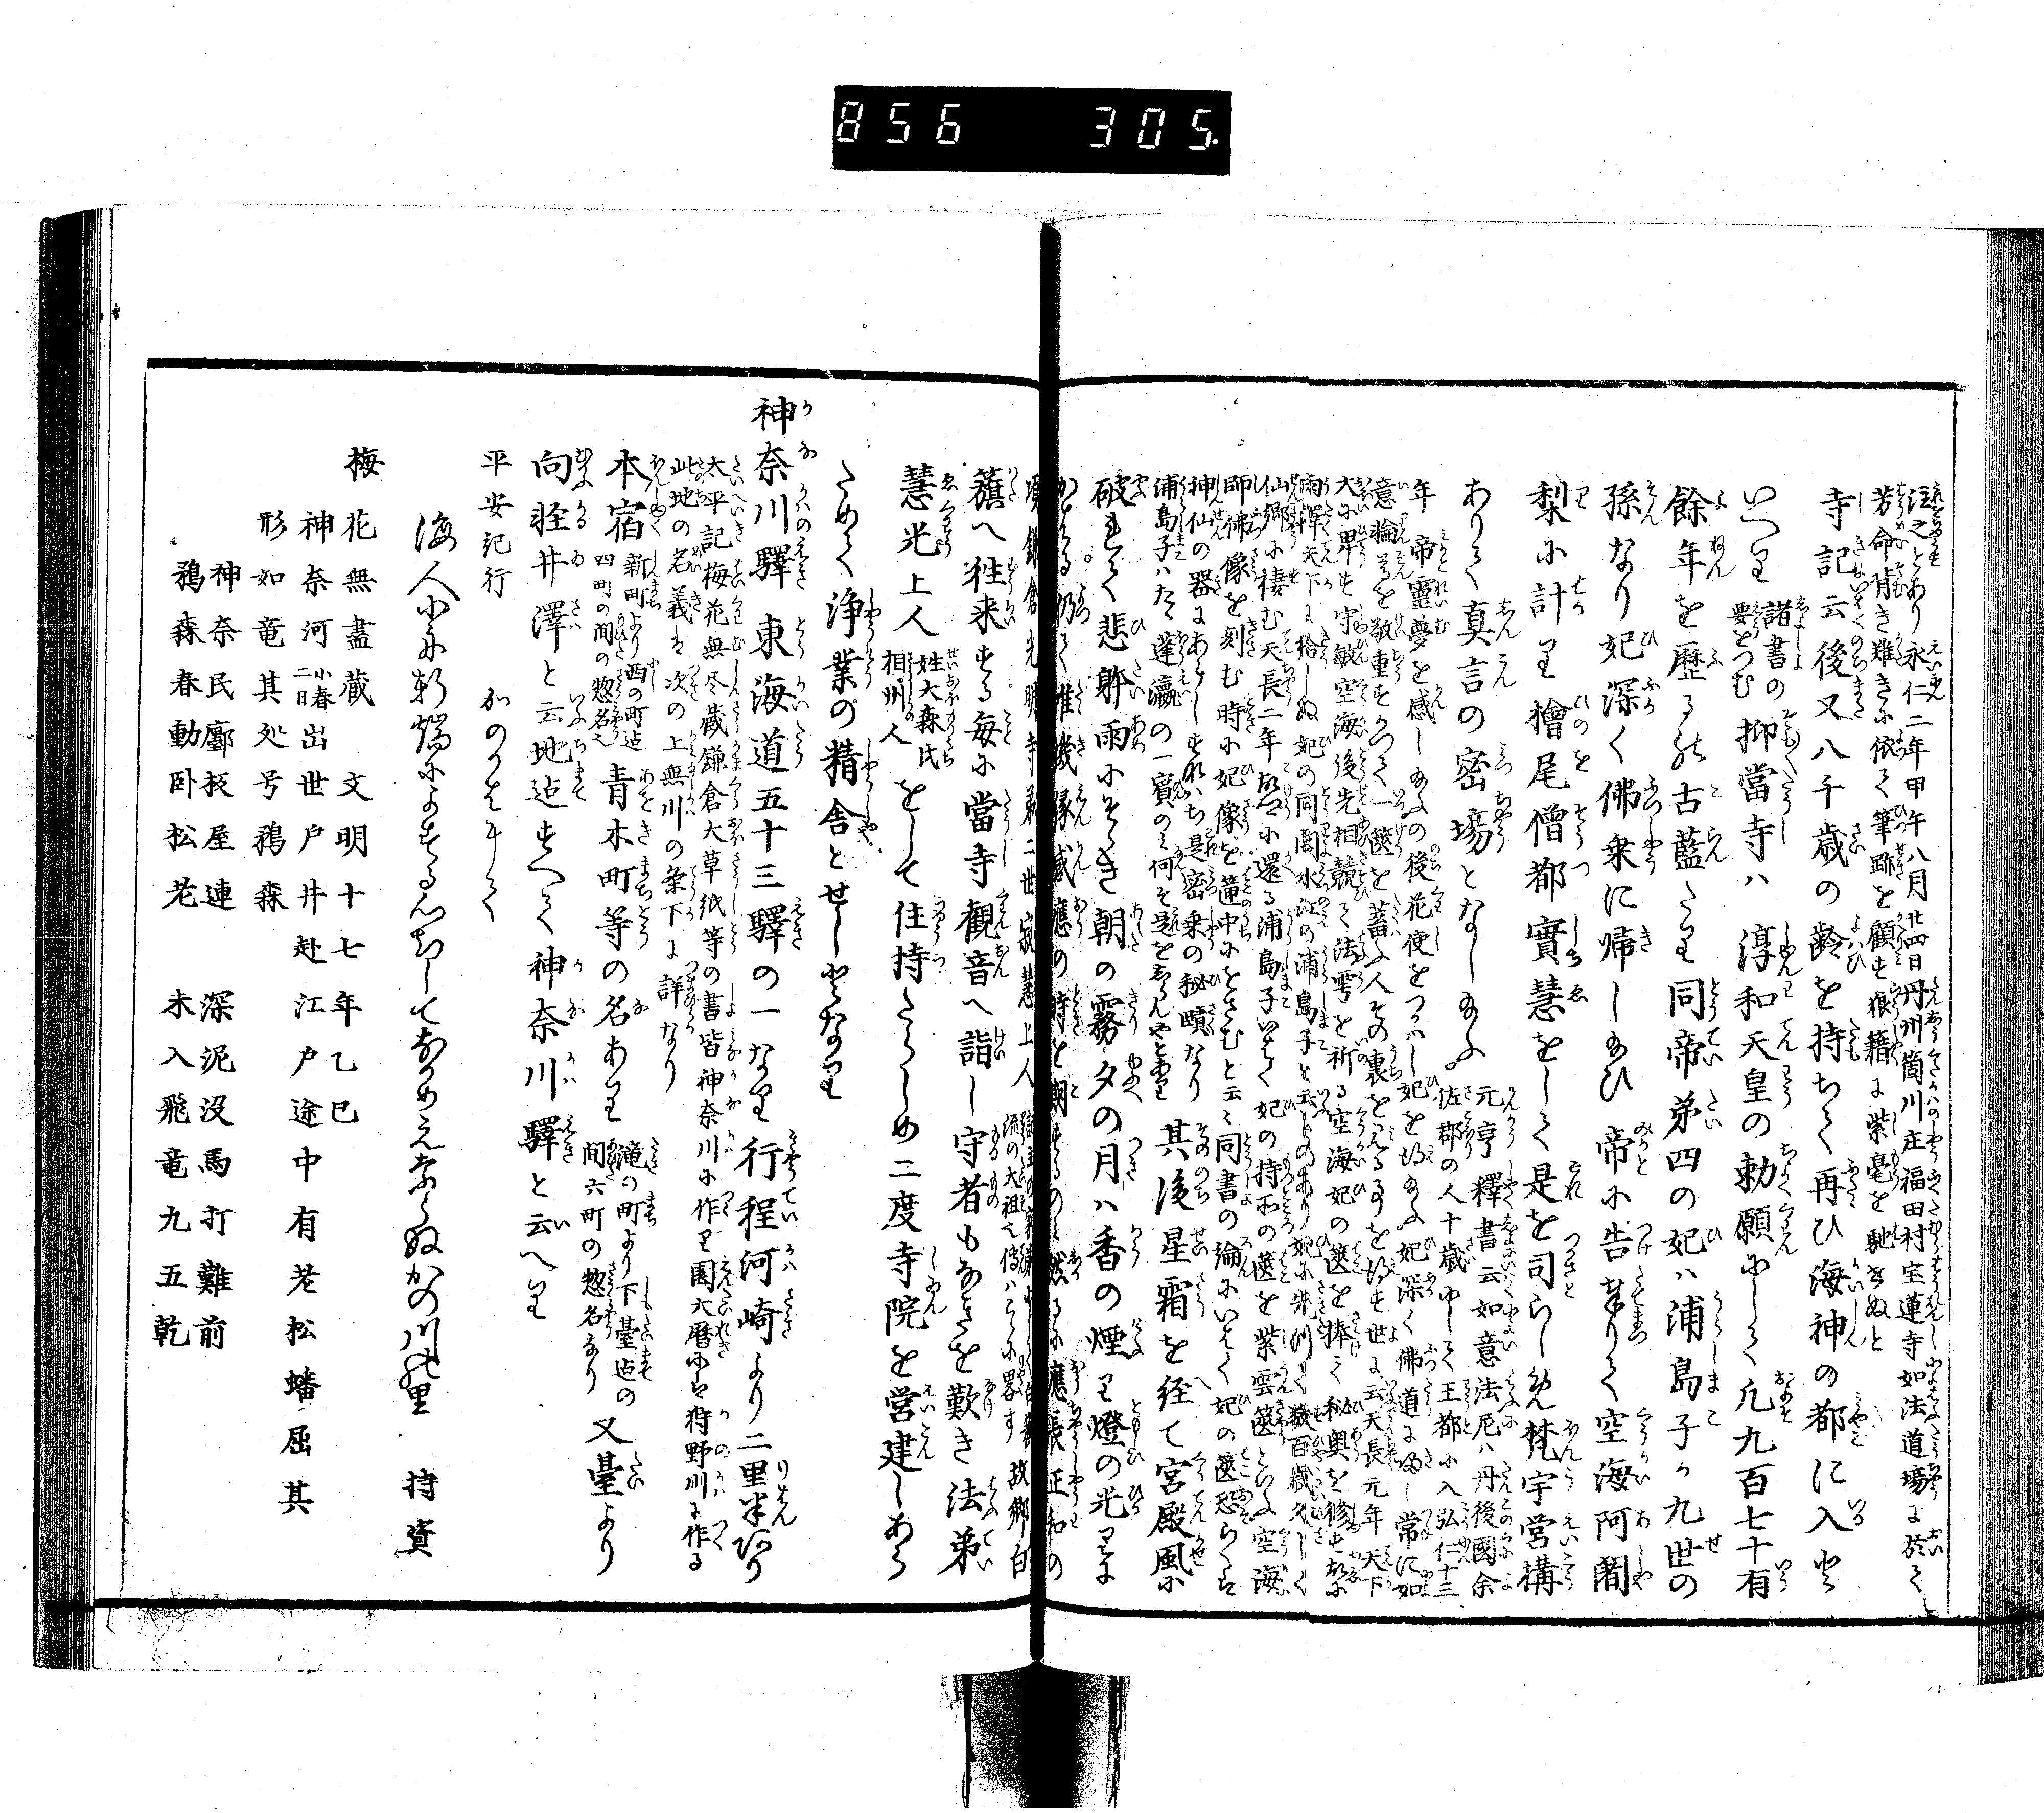 856 305.
注之とあり永仁二年甲午八月廿四日丹州筒川庄福田村宝蓮寺如法道場に於て
芳命背き難きに依て筆跡を顧す狼籍に紫毫を馳せぬと
寺記云後又八千歳の齢を持ちて再ひ海神の都に入と
いへり諸書の要をつむ抑當寺ハ淳和天皇の勅願にして凡九百七十有
餘年を歴る古藍たり同帝第四の妃ハ浦島子か九世の
孫なり妃深く佛乗に帰し給ひ帝に告奉りて空海阿闍
梨に計り檜尾僧都實慧をして是を司らしめ梵宇営構
ありて真言の密場となし給ふ
元亨釋書云如意法尼ハ丹後國余
佐郡の人十歳にして王都に入弘仁十三
年帝靈夢を感し給ふの後花使をつかハし妃を得給ふ妃深く佛道に帰し常に如
意輪を敬重すかつて一篋を蓄ふ人その裏をみる事を得す世に云天長元年天下
大に旱す守敏空海後先相競て法雩を祈る空海妃の篋を捧て秘奥を修す故に
雨澤天下に給しぬ妃の同閭水江の浦島子と云ものあり妃に先つて数百歳久しく
仙郷に棲む天長二年故に還る浦島子いはく妃の持所の篋を紫雲篋といふ空海
師佛像を刻む時に妃像を篋中にをさむと云云同書の論にいはく妃の篋恐らくは
神仙の器にあらしすなハち是密乗の秘賾なり
浦島子ハたゞ蓬瀛の一賓のミ何そ是をしらんやと
其後星霜を経て宮殿風に
破れて悲躰雨にそゝき朝の霧夕の月ハ香の煙り燈の光りに
かはる仍て惟機縁感應の時を期するのミ然るに應長正和の
頃鎌倉光明寺第二世寂慧上人
故郷白
籏へ往来する毎に當寺観音へ詣し守者もなきを歎き法弟
慧光上人姓大森氏相州人をして住持たらしめ二度寺院を営建しあら
ためて浄業の精舎とせしとなり
神奈川驛 東海道五十三驛の一なり行程河崎より二里半あり
太平記梅花無尽蔵鎌倉大草紙等の書皆神奈川に作り園太暦にハ狩野川に作る
此地の名義は次の上無川の条下に詳なり
本宿新町より西の町迄四町の間の惣名也青木町等の名あり滝の町より下臺迄の間六町の惣名なり又臺より
向軽井澤と云地迄すへて神奈川驛と云へり
平安記行 かのかはにて
海人
かの川の里 持資
梅花無盡蔵 文明十七年乙巳
神奈河小春二日出世戸井赴江戸途中有老松蟠屈其
形如竜其処号鵶森
神奈民鄽板屋連 深泥没馬打難前
鵶森春動卧松老 未入飛竜九五乾